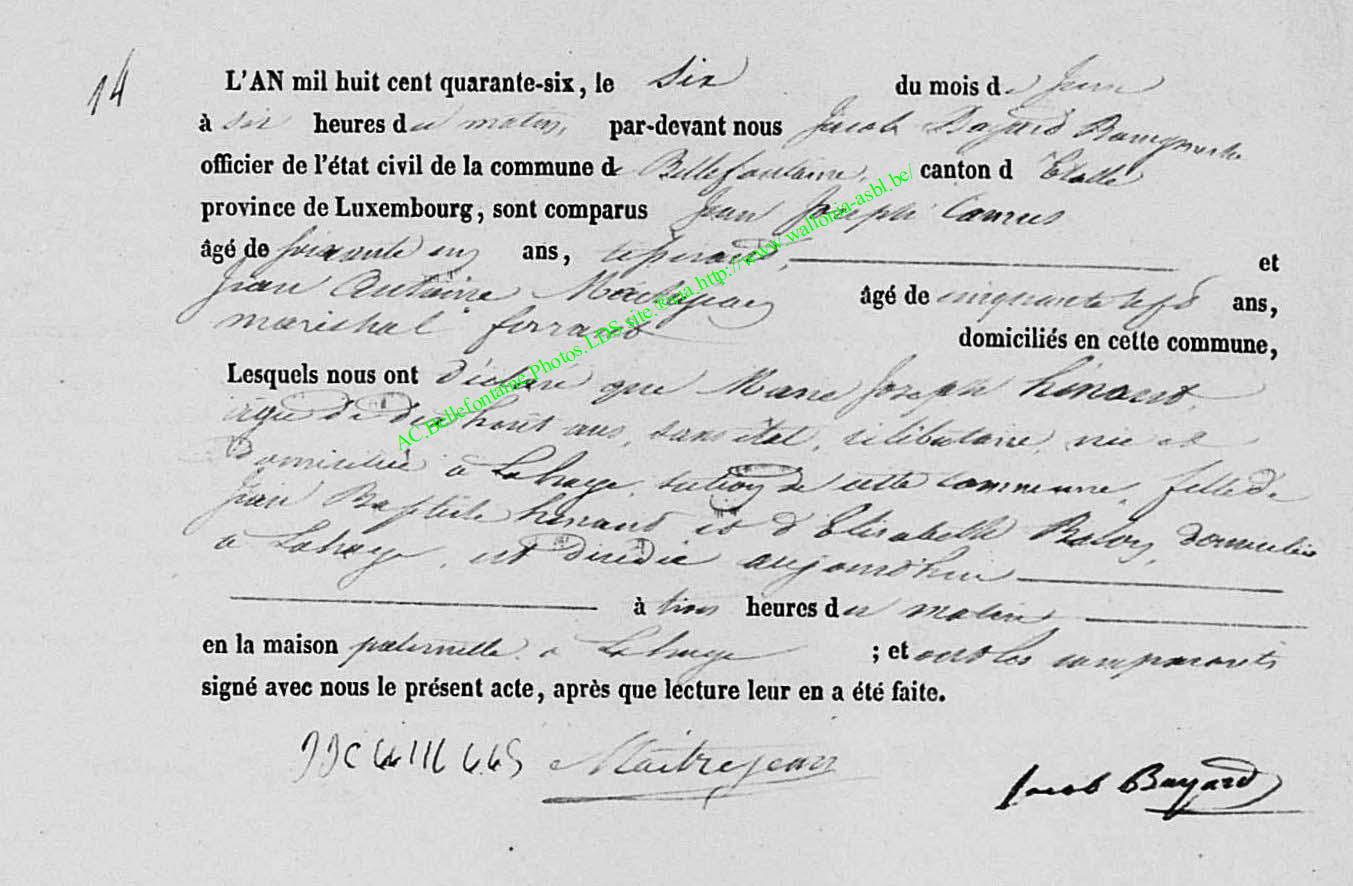 14
L'AN mil huit cent quarante-six, le six du mois de Juin
à six heures du matin, par-devant nous Jacob Bayard Bourgmestre
officier de l'état civil de la commune de Bellefontaine, canton d'Etalle
province de Luxembourg, sont comparus Jean Joseph Camus
âgé de soixante ans, et
Jean Antoine âgé de cinquante ans,
maréchal ferrant domiciliés en cette commune,
Lesquels nous ont déclaré que Marie Joseph hénaut,
agée de dix huit ans, sans état, célibataire, née et
domiciliée à Lahage, section de cette commune, fille de
Jean Baptiste hénaut et d'Elisabeth domiciliés
à Lahage, est décédée aujourd'hui
à trois heures du matin
en la maison paternelle à Lahage ; et ont les comparants
signé avec nous le présent acte, après que lecture leur en a été faite.
Maitrejean
Jacob Bayard
AC.Bellefontaine.Photos.LDS.site. http://www.wallonia-asbl.be/